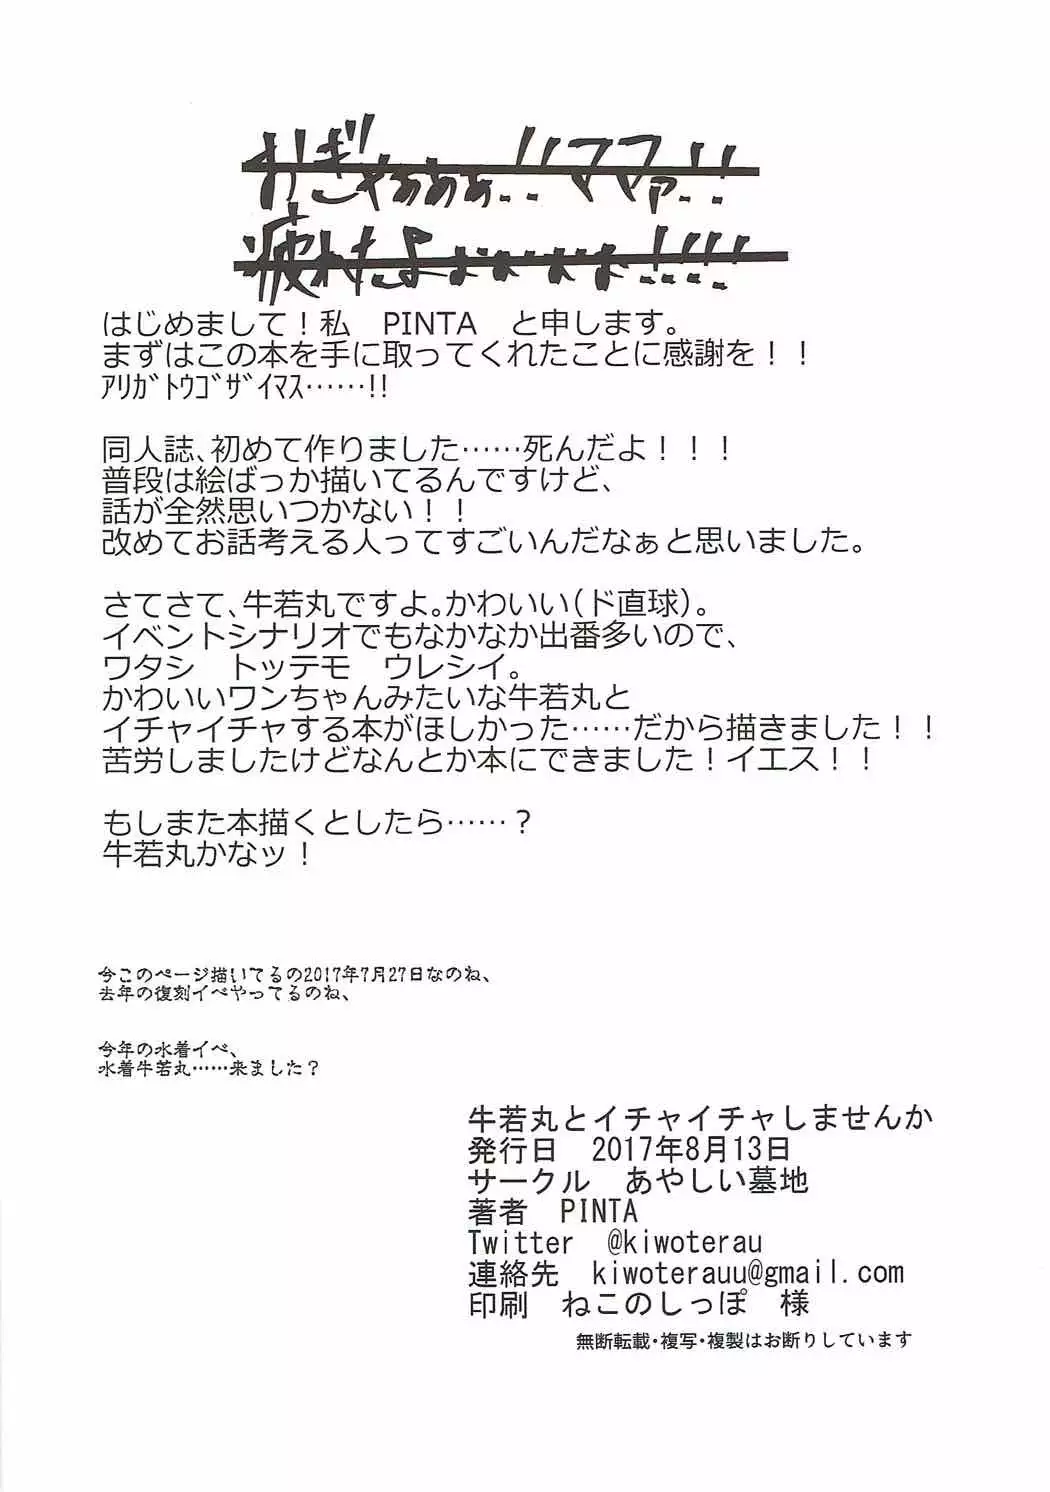 おぎゃあああ!!ママァ!!
疲れたよぉぉぉぉ!!!!
はじめまして！私　PINTA　と申します。
まずはこの本を手に取ってくれたことに感謝を！！
ｱﾘｶﾞﾄｳｺﾞｻﾞｲﾏｽ……!!
同人誌、初めて作りました……死んだよ！！！
普段は絵ばっか描いてるんですけど、
話が全然思いつかない！！
改めてお話考える人ってすごいんだなぁと思いました。
さてさて、牛若丸ですよ。かわいい（ド直球）。
イベントシナリオでもなかなか出番多いので、
ワタシ　トッテモ　ウレシイ。
かわいいワンちゃんみたいな牛若丸と
イチャイチャする本がほしかった……だから描きました！！
苦労しましたけどなんとか本にできました！イエス！！
もしまた本描くとしたら……？
牛若丸かなッ！
今このページ描いてるの2017年7月27日なのね、
去年の復刻イベやってるのね、
今年の水着イベ、
水着牛若丸……来ました？
牛若丸とイチャイチャしませんか
発行日　2017年8月13日
サークル　あやしい墓地
著者　PINTA
Twitter　@kiwoterau
連絡先　kiwoterauu@gmail.com
印刷　ねこのしっぽ　様
無断転載・複写・複製はお断りしています